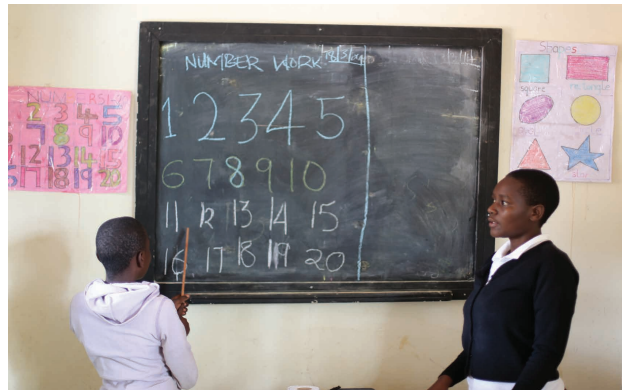 NUMBER WORK
1 2 3 4 5
6 7 8 9 10
11 12 13 14 15
16 17 18 19 20
2 3 4 5
7 8 9 10
12 13 14 15
17 18 19 20
Shapes
square
rectangle